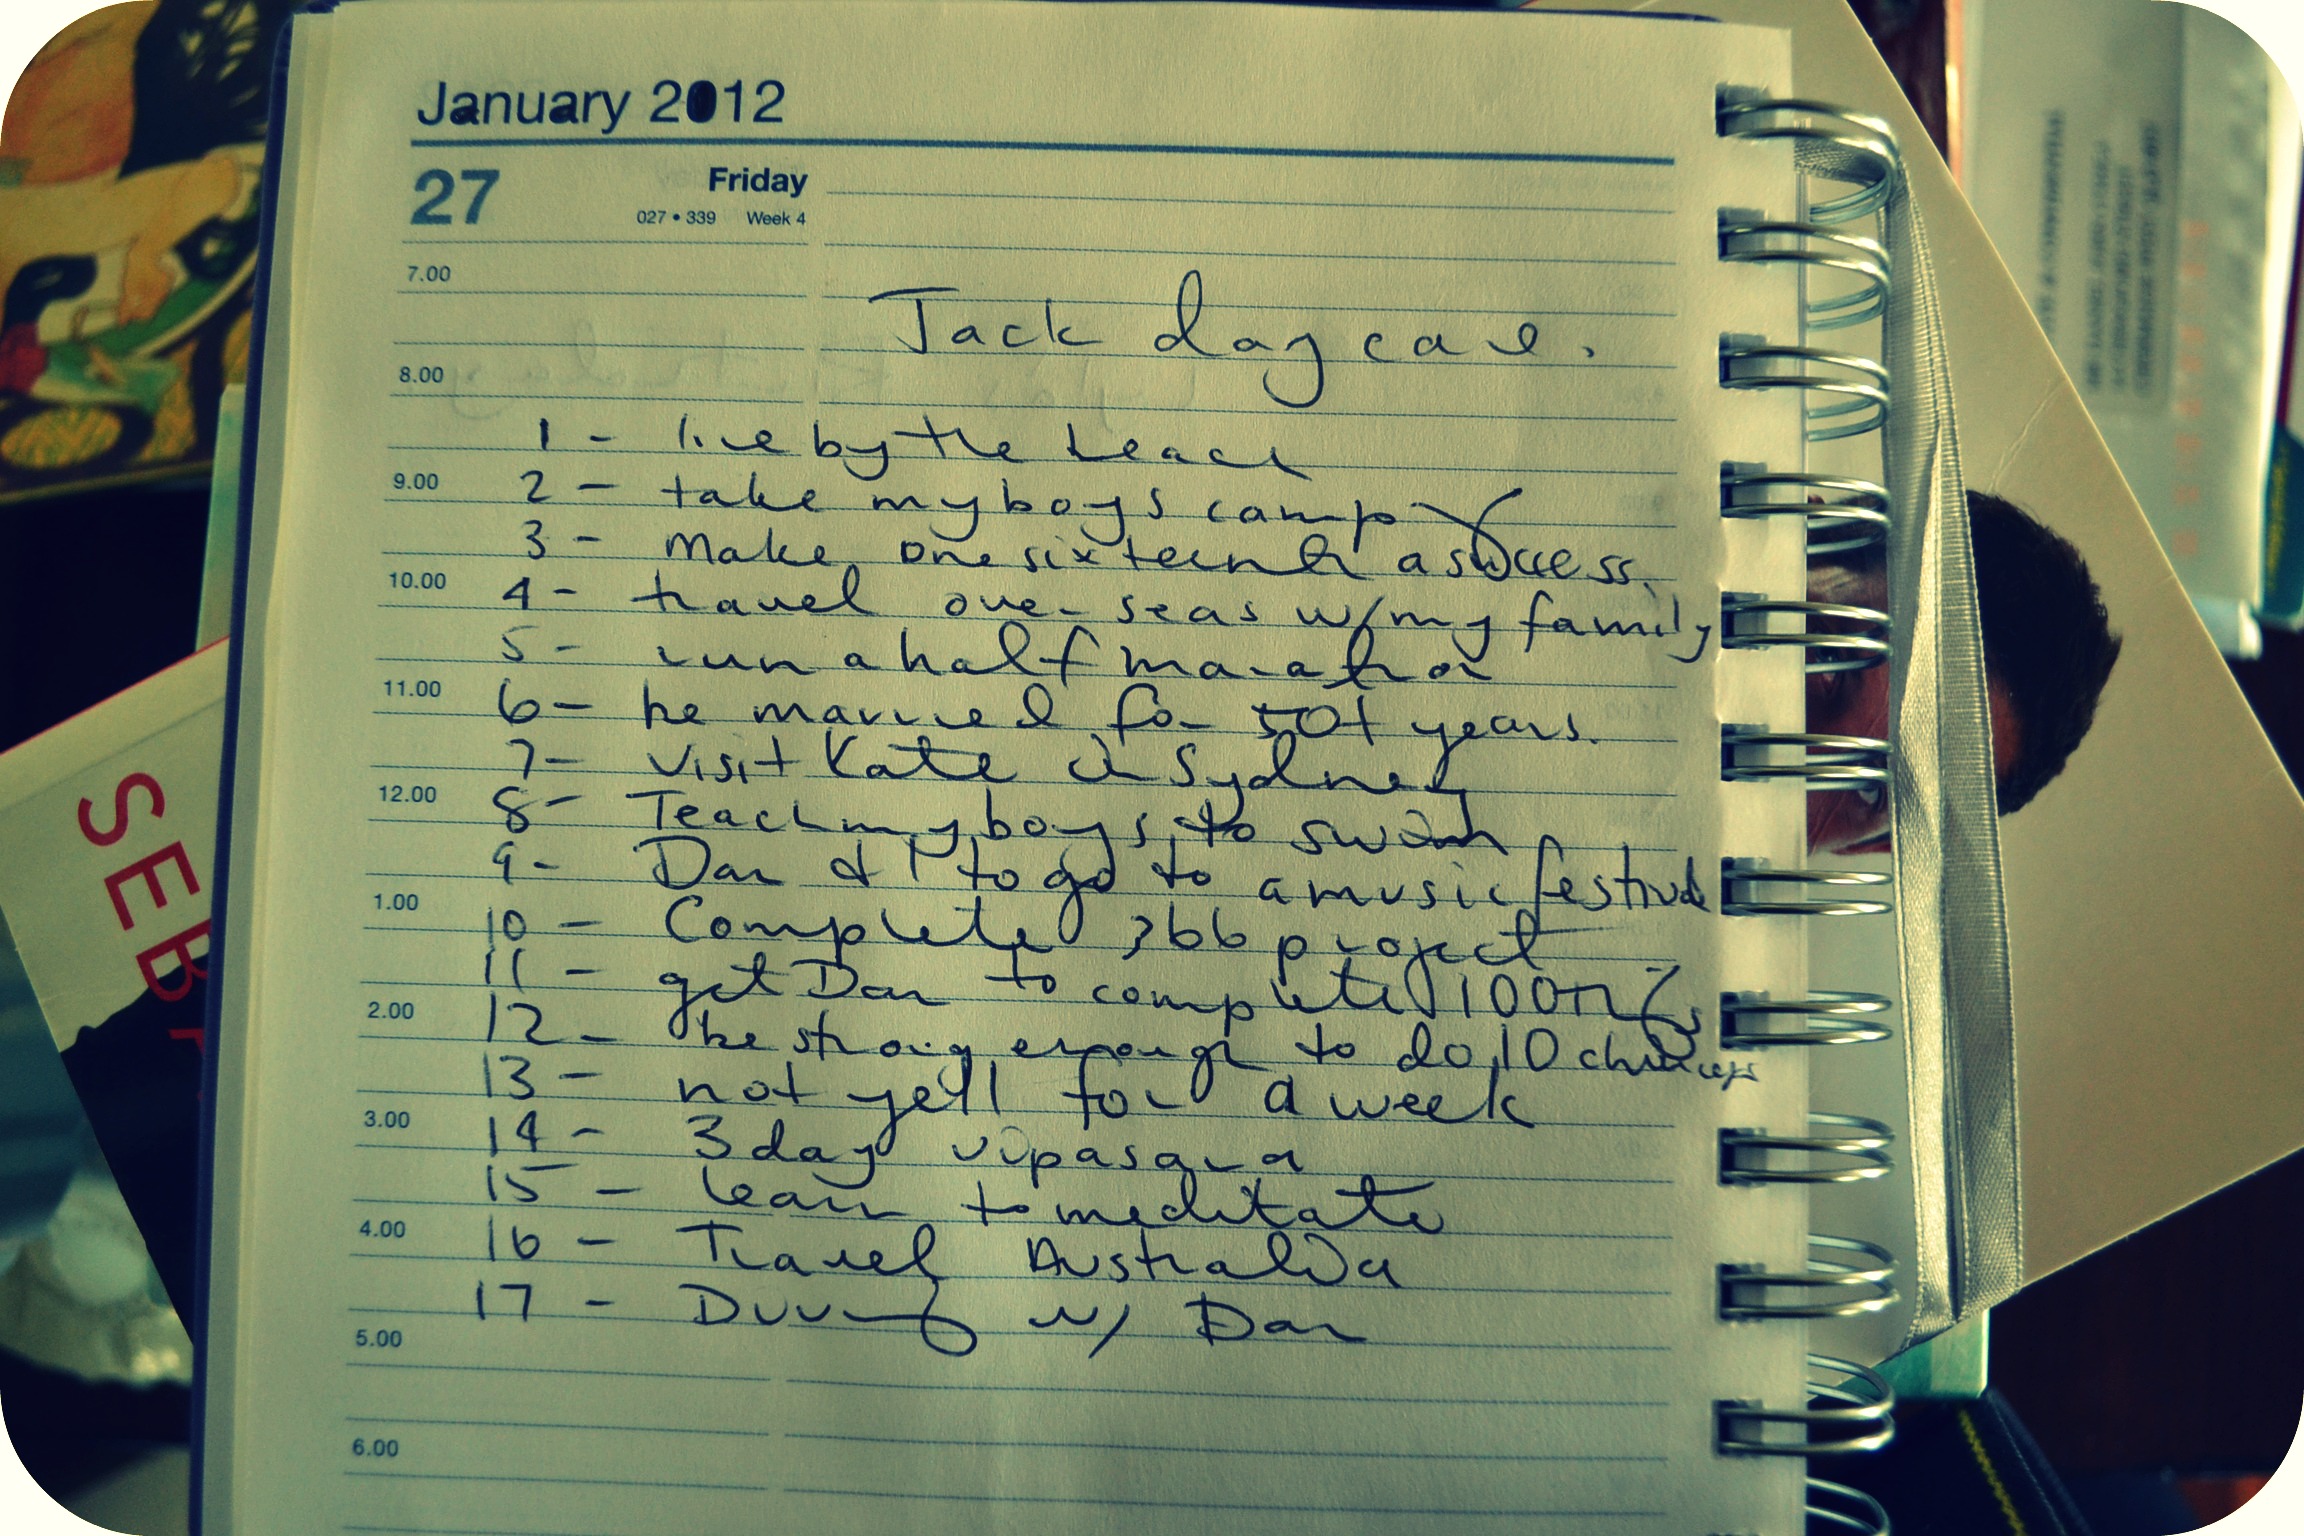 January 2012
27 Friday
027 • 339 Week 4
7.00
Jack day care.
8.00
1 - live by the beach
9.00
2 - take my boys camping
3 - Make one sixteenth a success.
10.00
4 - travel over seas w/ my family
5 - run a half marathon
11.00
6 - be married for 50+ years.
7 - visit Kate in Sydney
12.00
8 - Teach my boys to swim
9 - Dan & I to go to a music festival
1.00
10 - Complete 366 project
11 - get Dan to complete 100
2.00
12 - be strong enough to do 10 chinups
13 - not yell for a week
3.00
14 - 3 day vipasana
15 - learn to meditate
4.00
16 - Travel Australia
17 - w/ Dan
5.00
6.00
SEBA